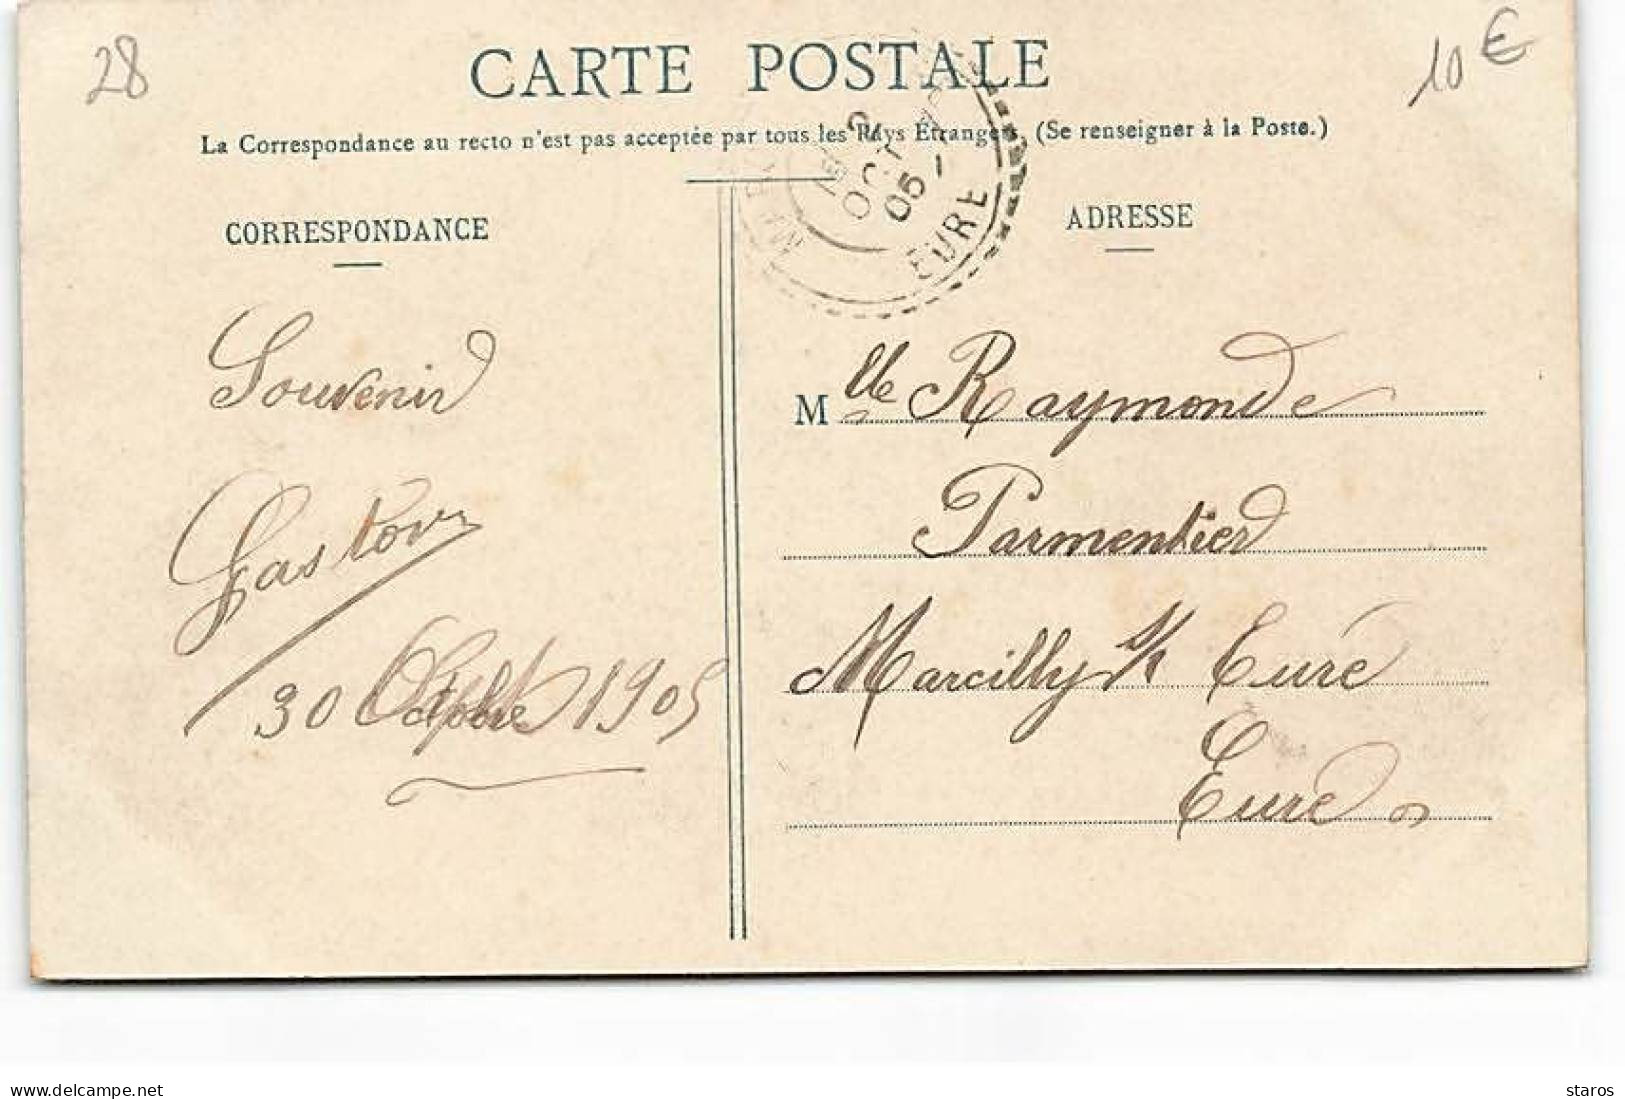 28
10 €
CARTE POSTALE
La Correspondance au recto n'est pas acceptée par tous les Pays Etrangers. (Se renseigner à la Poste.)
OCT
05
EURE
CORRESPONDANCE
Souvenir
Gaston
30 Octobre 1905
ADRESSE
Mlle Raymonde
Parmentier
Marcilly s/ Eure
Eure
www.delcampe.net
staros